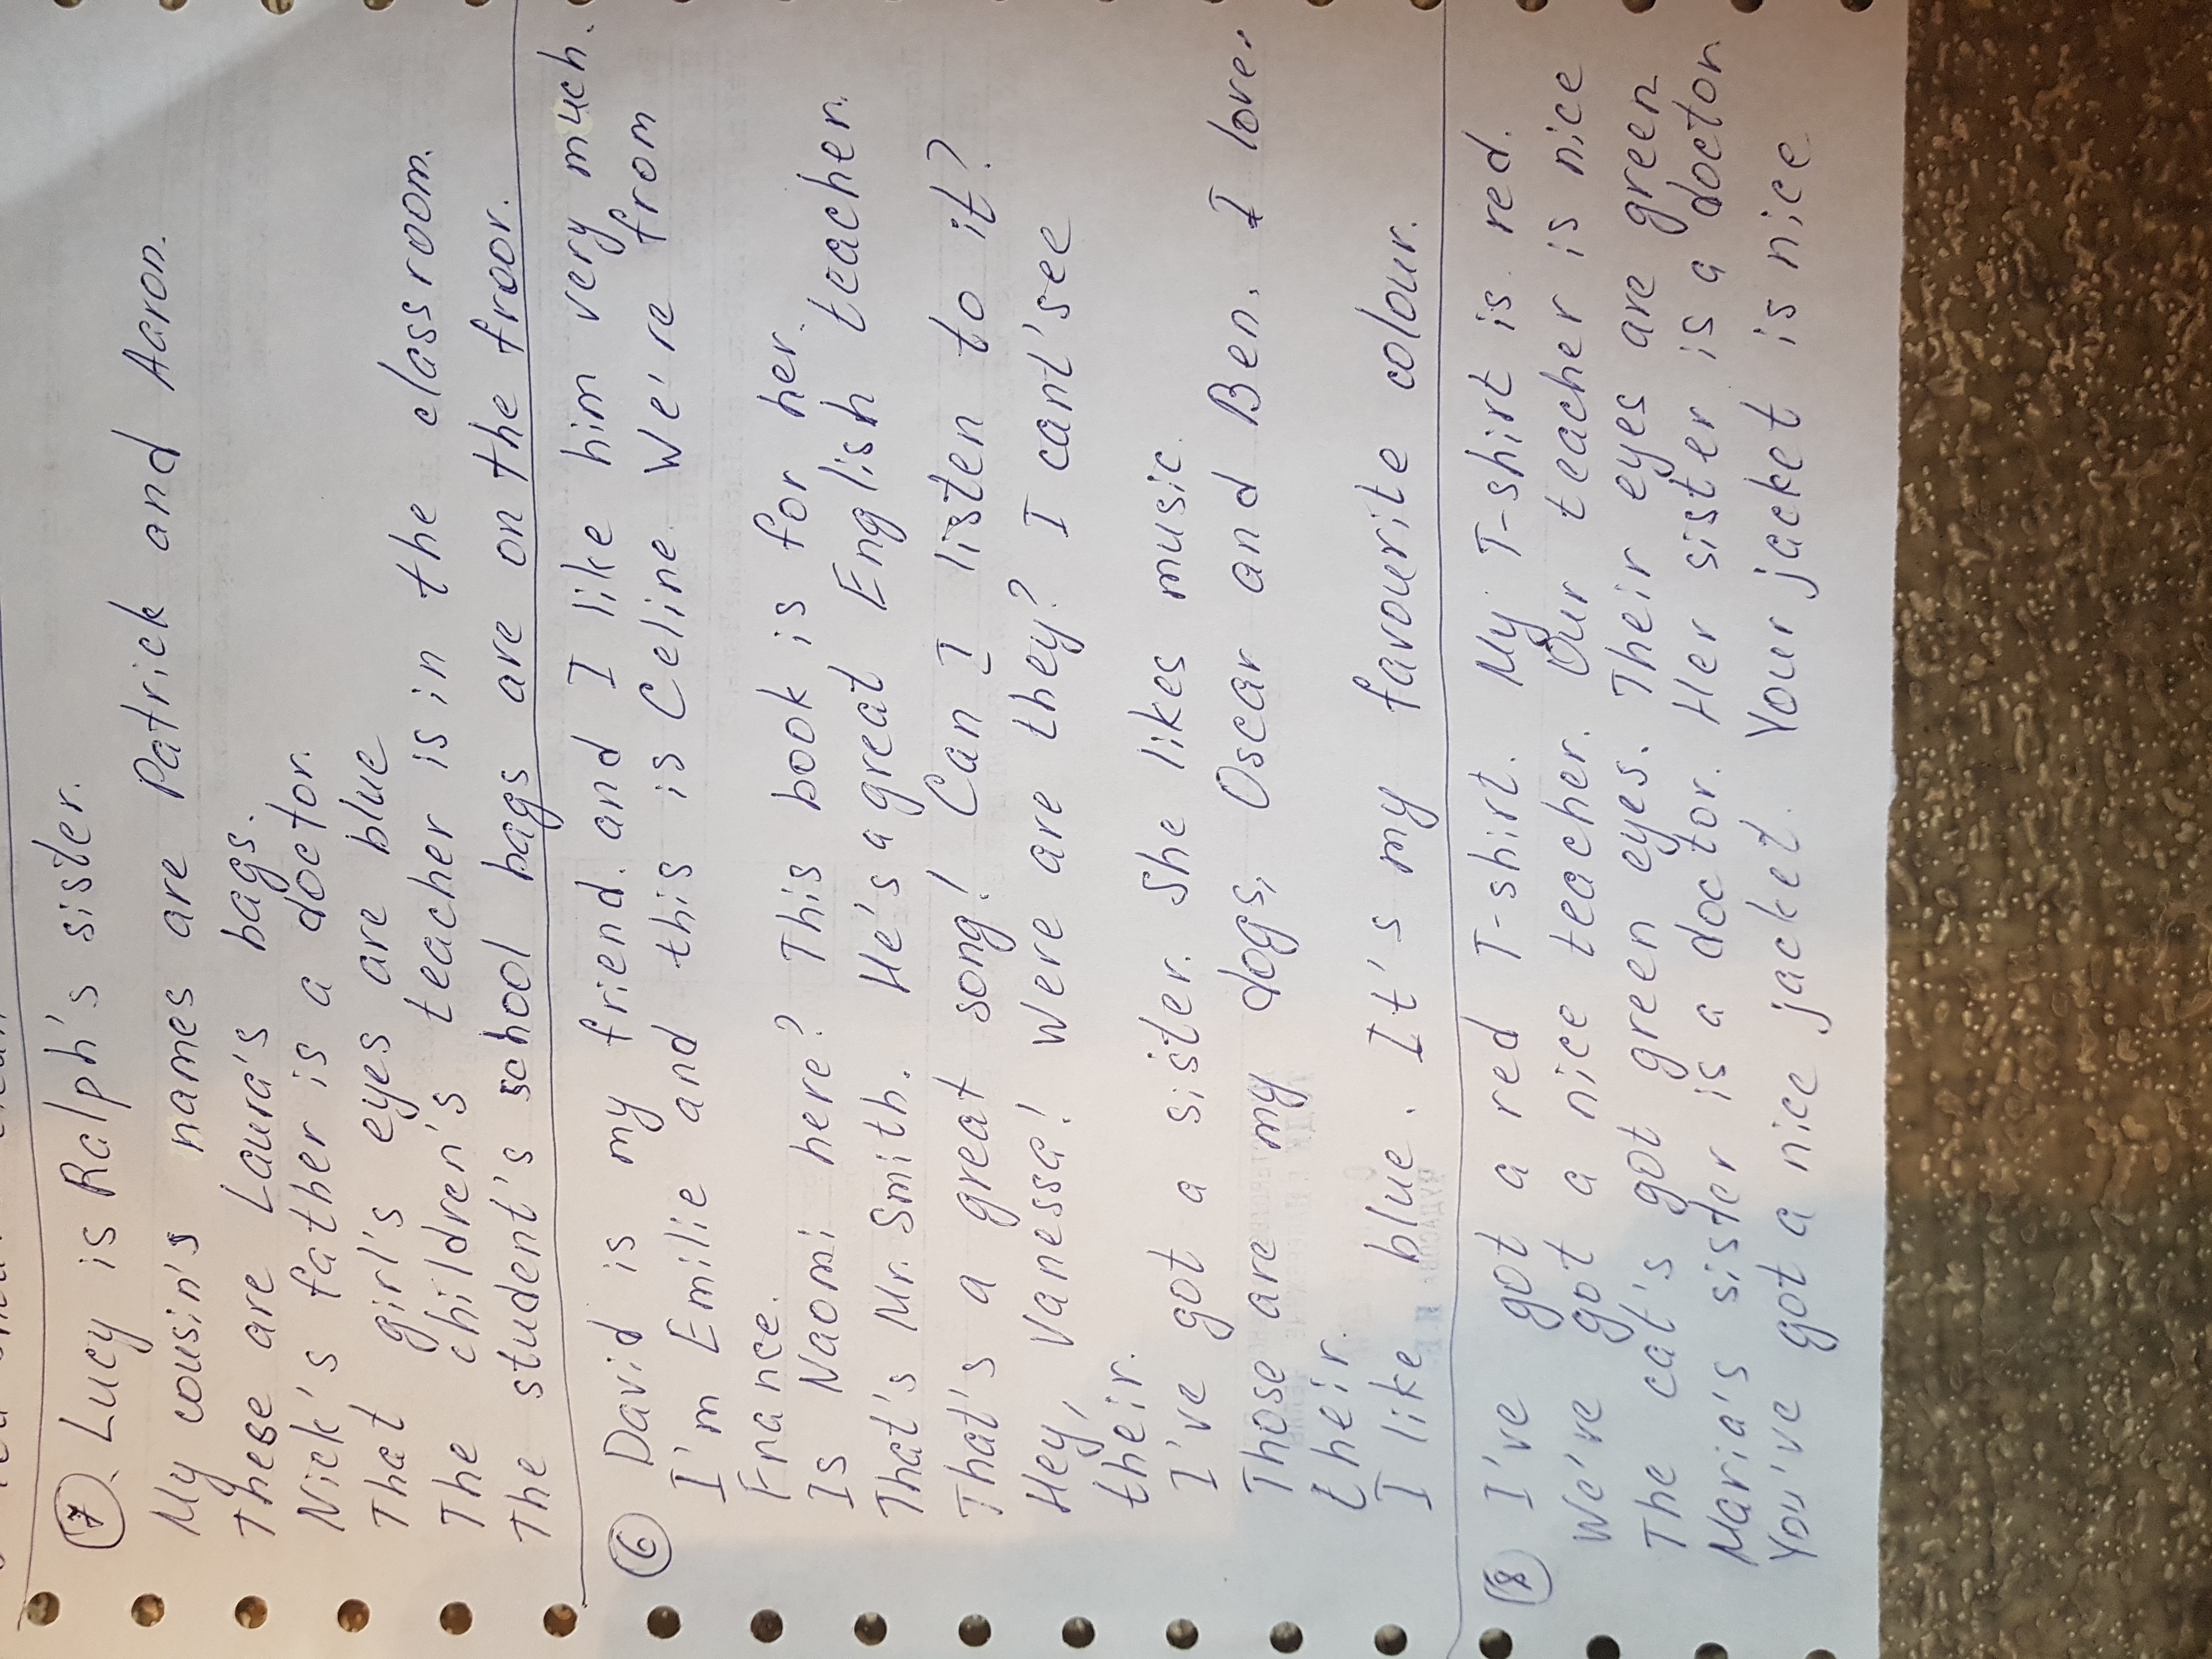 (7). Lucy is Ralph's sister.
My cousin's names are Patrick and Aaron.
These are Laura's bags.
Nick's father is a doctor.
That girl's eyes are blue
The children's teacher is in the classroom.
The student's school bags are on the froor.
(6) David is my friend. and I like him very much.
I'm Emilie and this is Celine. We're from
France.
Is Naomi here? This book is for her.
That's Mr. Smith. He's a great English teacher.
That's a great song! Can I listen to it?
Hey, Vanessa! Were are they? I cant'see
their.
I've got a sister. She likes music.
Those are my dogs, Oscar and Ben. I love
their.
I like blue. It's my favourite colour.
(8) I've got a red T-shirt. My T-shirt is red.
We've got a nice teacher. Our teacher is nice
The cat's got green eyes. Their eyes are green
Maria's sister is a doctor. Her sister is a doctor
You've got a nice jacket. Your jacket is nice